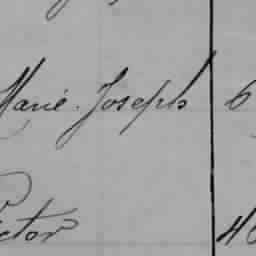 Marie. Joseph 6
Victor 46